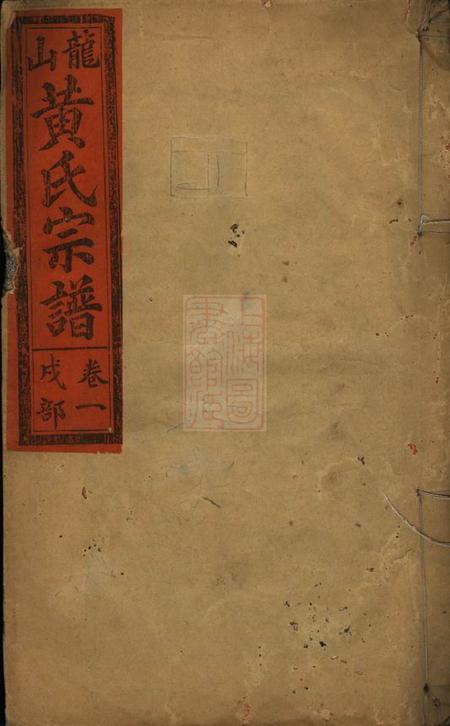 龍山
黃氏宗譜
卷一
戌部
上海圖書館藏